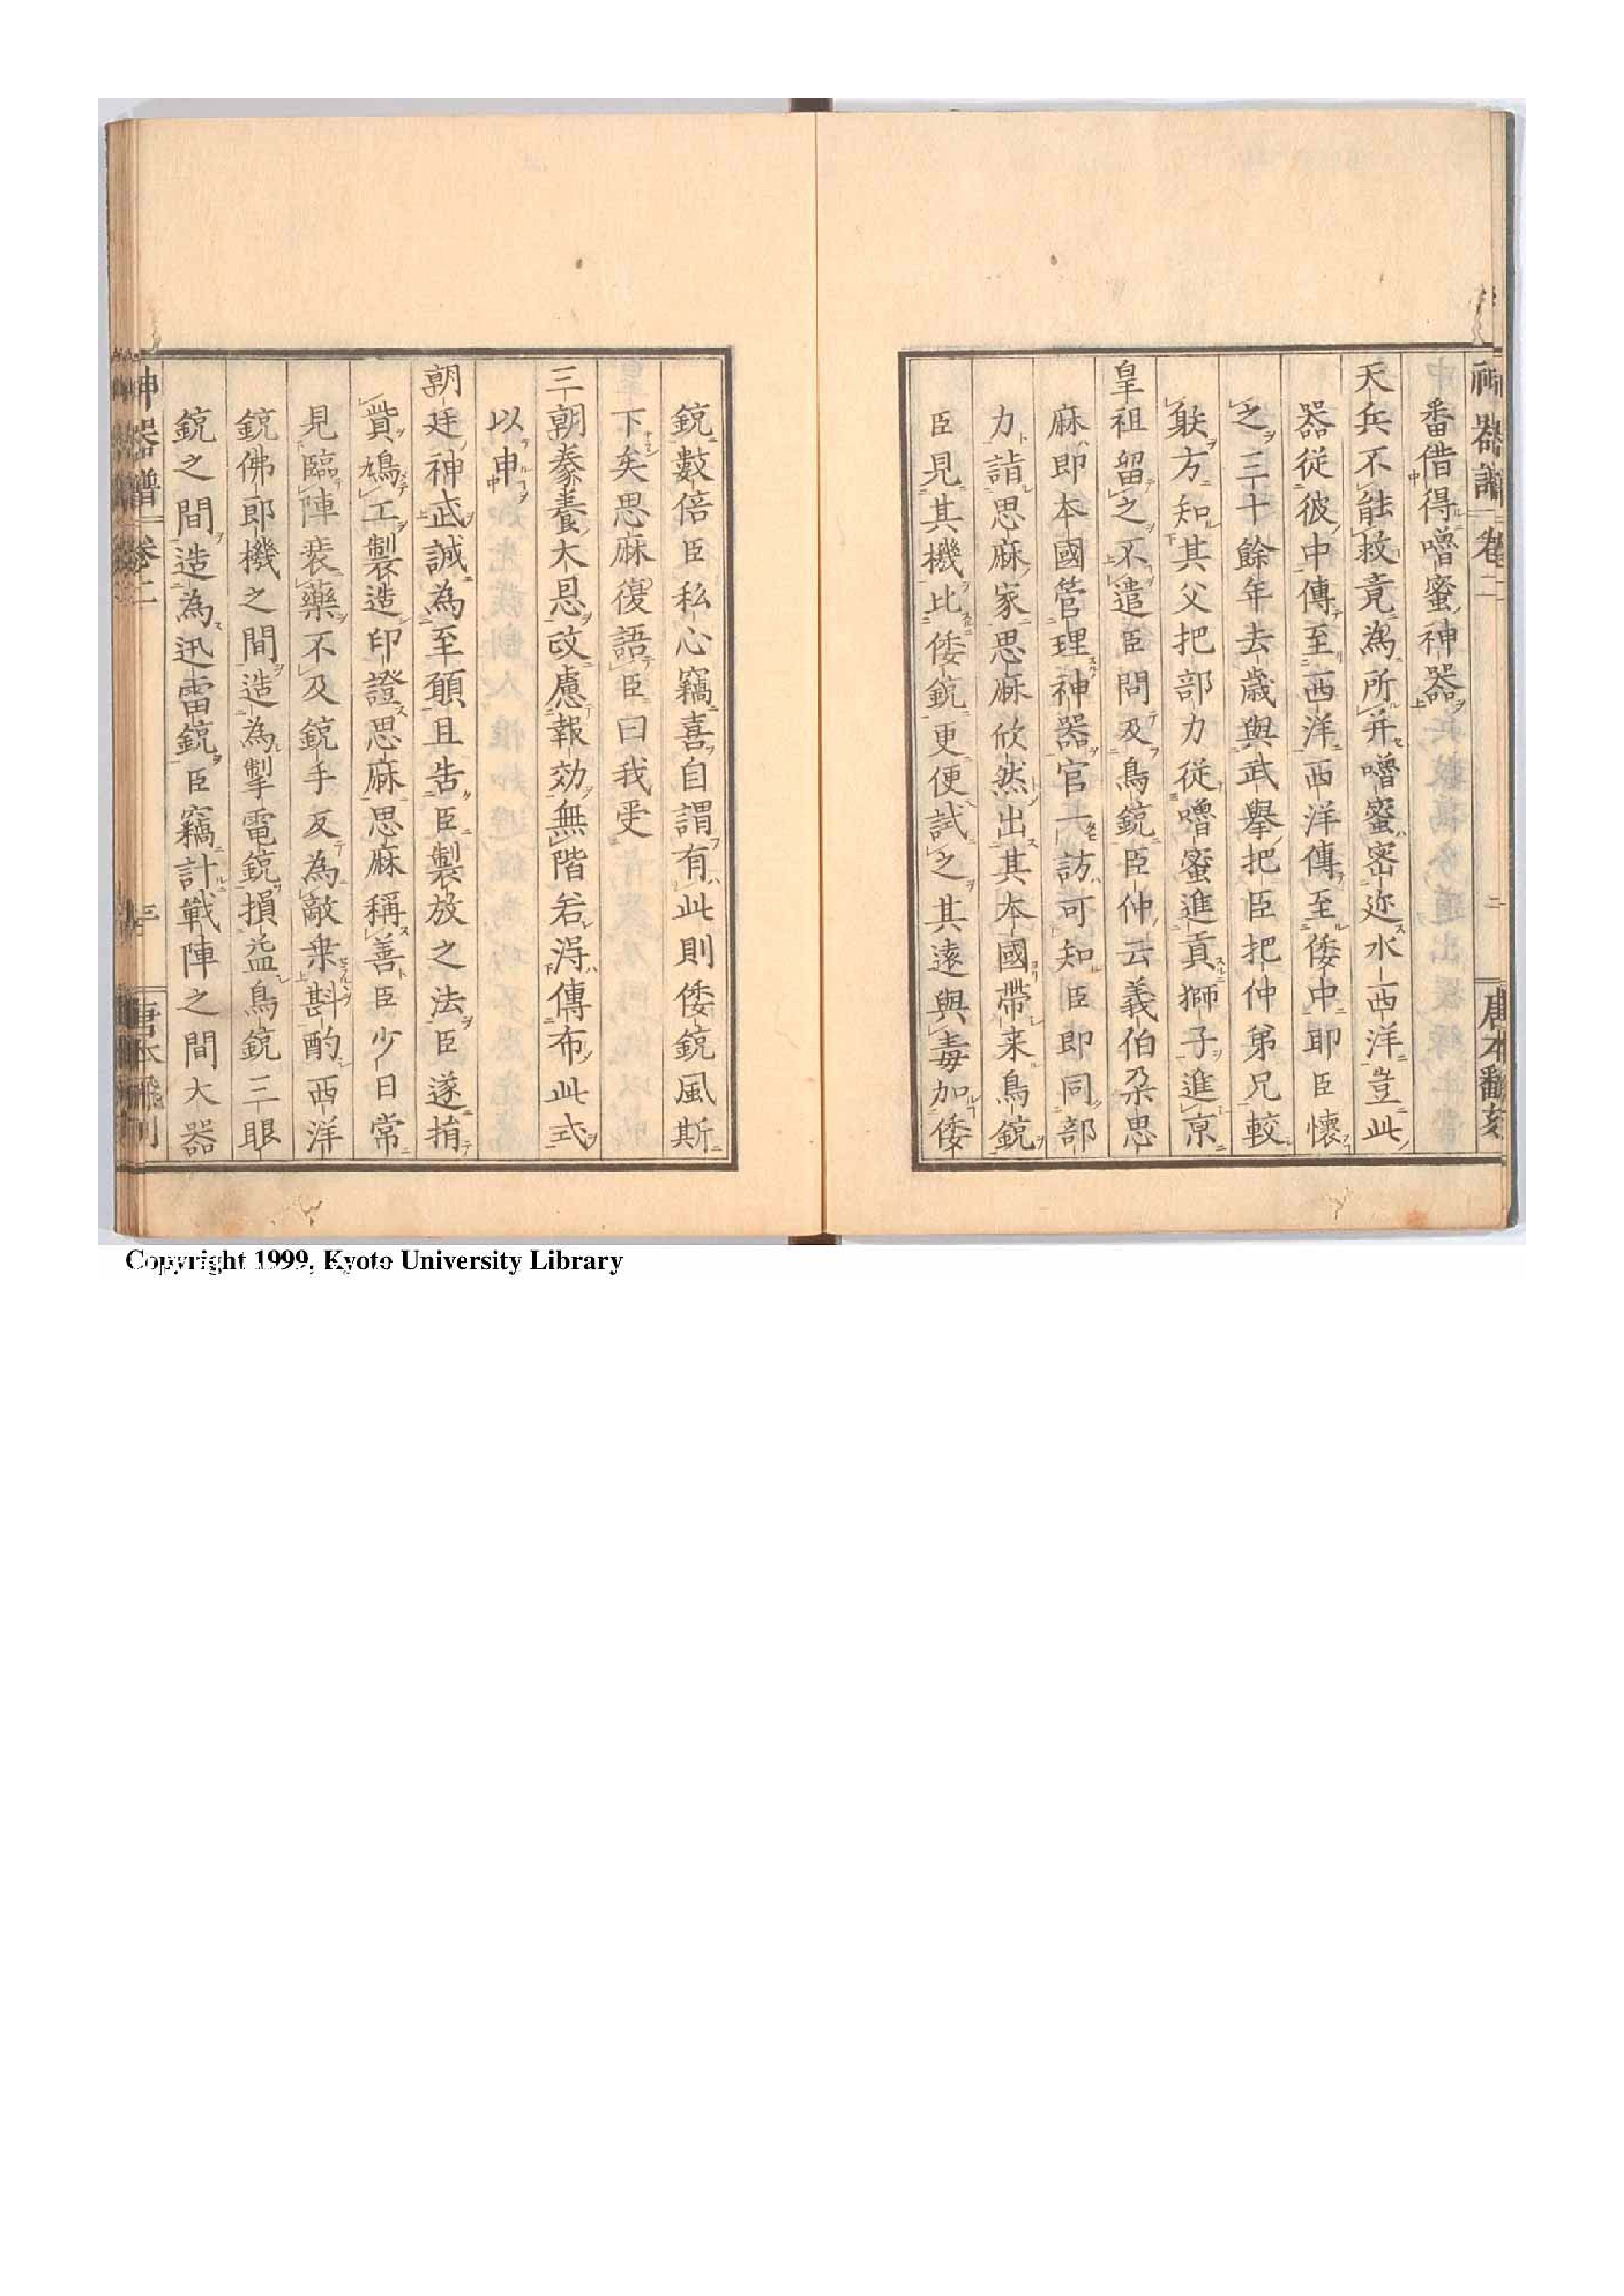 神器譜 卷二 二 唐本翻刻
番借得嚕蜜神器
天兵不能救竟為所并嚕蜜密迩水西洋豈此
器從彼中傳至西洋西洋傳至倭中耶臣懷
之三十餘年去歲與武舉把臣把仲弟兄較
射方知其父把部力從嚕蜜進貢獅子進京
皇祖留之不遣臣問及鳥銃臣仲云義伯朶思
麻即本國管理神器官一訪可知臣即同部
力詣思麻家思麻欣然出其本國帶来鳥銃
臣見其機比倭銃更便試之其遠與毒加倭
銃數倍臣私心竊喜自謂有此則倭銃風斯
下矣思麻復語臣曰我受
三朝豢養大恩改慮報効無階若得傳布此式
以申
朝廷神武誠為至願且告臣製放之法臣遂捐
貲鳩工製造印證思麻思麻稱善臣少日常
見臨陣裝藥不及銃手反為敵乗斟酌西洋
銃佛郎機之間造為掣電銃損益鳥銃三眼
銃之間造為迅雷銃臣竊計戰陣之間大器
神器譜 卷二 三
Copyright 1999, Kyoto University Library